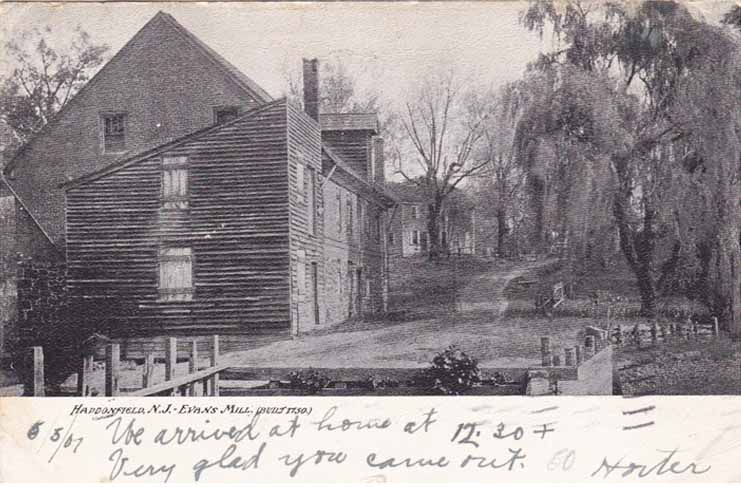 HADDONFIELD, N.J.-EVANS MILL. (BUILT 1730.)
6/3/07 We arrived at home at 12.30
Very glad you came out.